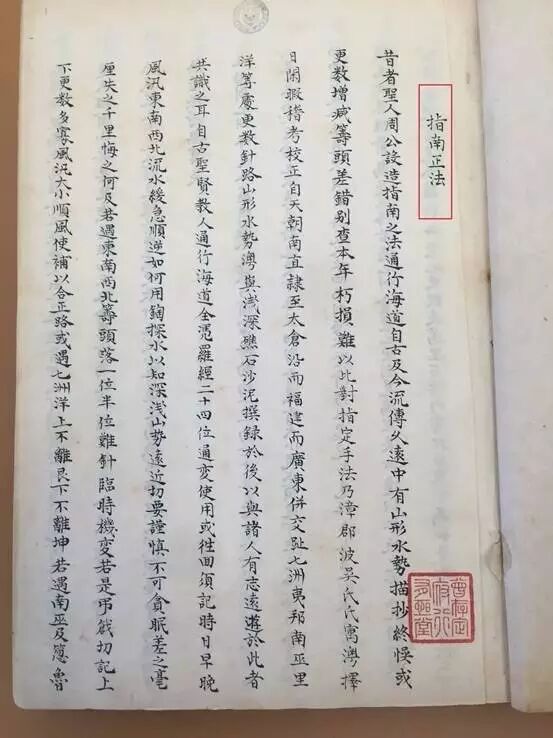 指南正法
昔者聖人周公設造指南之法通行海道自古及今流傳久遠中有山形水勢描抄終悞或
更数增减筹頭差錯别查本年朽損難以比對指定手法乃漳郡波吳氏氏寓澳擇
日閑暇稽考校正自天朝南直隷至太倉沿而福建而廣東併交趾七洲夷邦南巫里
洋等處更数針路山形水勢澳與浅深礁石沙泥撰録於後以與諸人有志遠遊於此者
共識之耳自古聖賢教人通行海道全凴羅經二十四位通变使用或往回須記時日早晚
風汛東南西北流水緩急順逆如何用鉤探水以知深浅山势遠近切要謹慎不可貪眠差之毫
厘失之千里悔之何及若遇東南西北筹頭落一位半位難針臨時機变若是弔戗切記上
下更数多寡風汛大小順風使補以合正路或遇七洲洋上不離艮下不離坤若遇南巫及䓤魯